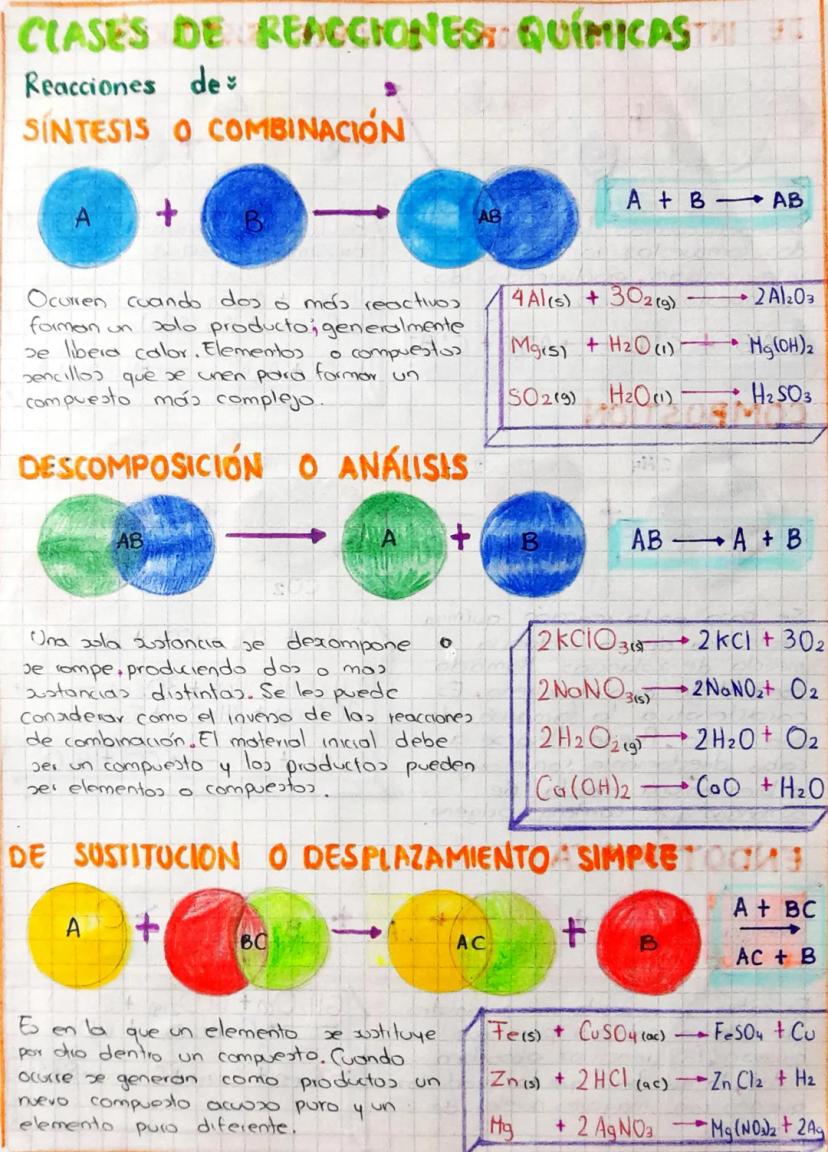 CLASES DE REACCIONES QUÍMICAS
Reacciones de:
SÍNTESIS O COMBINACIÓN
A + B → AB
A + B → AB
Ocurren cuando dos o más reactivos
forman un solo producto; generalmente
se libera calor. Elementos o compuestos
sencillos que se unen para formar un
compuesto más complejo.
4Al(s) + 3O2(g) → 2Al2O3
Mg(s) + H2O(l) → Mg(OH)2
SO2(g) H2O(l) → H2SO3
DESCOMPOSICIÓN O ANÁLISIS
AB → A + B
AB → A + B
Una sola sustancia se descompone o
se rompe, produciendo dos o mas
sustancias distintas. Se les puede
considerar como el inverso de las reacciones
de combinación. El material inicial debe
ser un compuesto y los productos pueden
ser elementos o compuestos.
2KClO3(s) → 2KCl + 3O2
2NaNO3(s) → 2NaNO2 + O2
2H2O2(g) → 2H2O + O2
Ca(OH)2 → CaO + H2O
DE SUSTITUCION O DESPLAZAMIENTO SIMPLE
A + BC → AC + B
A + BC
→
AC + B
Es en la que un elemento se sustituye
por otro dentro un compuesto. Cuando
ocurre se generan como productos un
nuevo compuesto acuoso puro y un
elemento puro diferente.
Fe(s) + CuSO4(ac) → FeSO4 + Cu
Zn(s) + 2HCl(ac) → ZnCl2 + H2
Mg + 2AgNO3 → Mg(NO3)2 + 2Ag